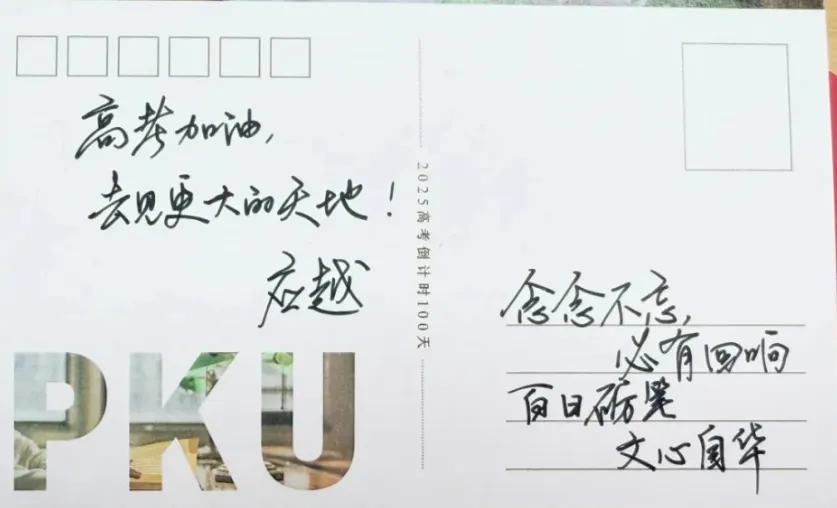 高考加油，
去见更大的天地！
应越
PKU
2025高考倒计时100天
念念不忘，
必有回响
百日砺笔
文心自华